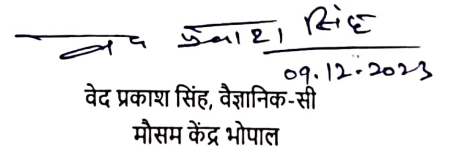 वेद प्रकाश सिंह
09.12.2023
वेद प्रकाश सिंह, वैज्ञानिक-सी
मौसम केंद्र भोपाल